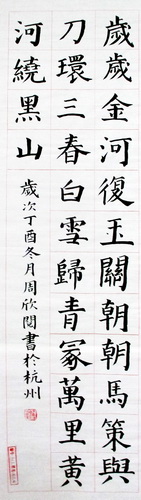 歲歲金河復玉關朝朝馬策與
刀環三春白雪歸青冢萬里黃
河繞黑山
歲次丁酉冬月周欣閱書於杭州